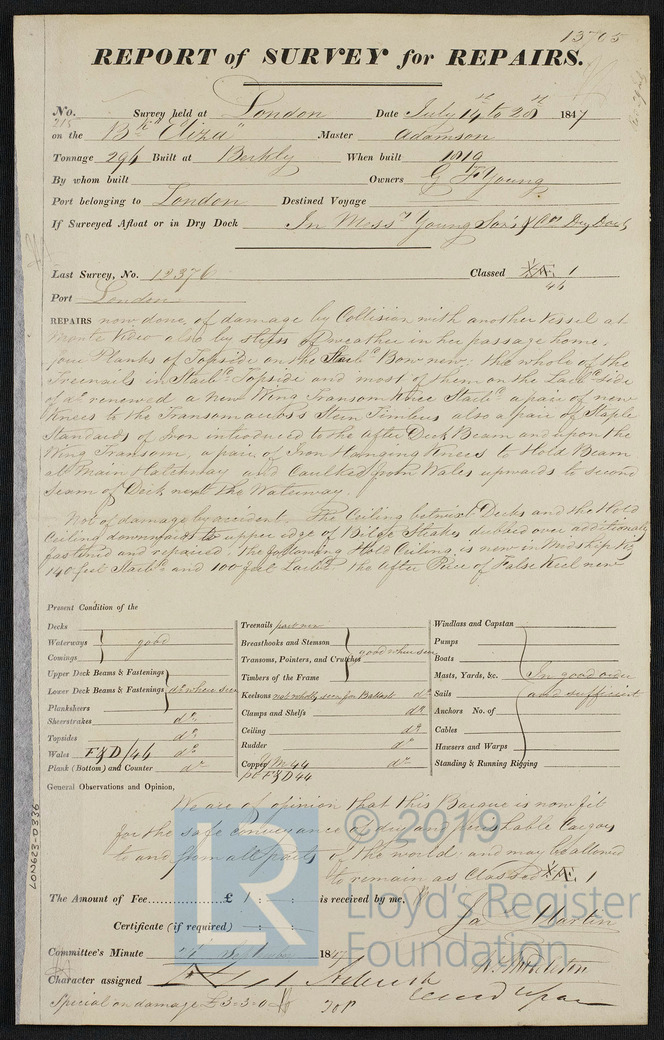 13705
REPORT of SURVEY for REPAIRS.
No. 215 Survey held at London Date July 14th to 28th 1847
on the Bk "Eliza" Master Adamson
Tonnage 296 Built at Berkly When built 1819
By whom built Owners G F Young
Port belonging to London Destined Voyage
If Surveyed Afloat or in Dry Dock In Messrs Young Son & Cos Dry Dock
Last Survey, No. 12376 Classed Æ 1
46
Port London
REPAIRS now done, of damage by Collision with another Vessel at
Monte Video also by stress of weather in her passage home,
four Planks of Topside on the Starbd Bow new. the whole of the
Treenails in Starbd Topside and most of them on the Larbd side
of do renewed a new Wing Transom Knee Starbd a pair of new
Knees to the Transom across Stern Timbers also a pair of Staple
Standards of Iron introduced to the after Deck Beam and upon the
Wing Transom, a pair of Iron Hanging Knees to Hold Beam
at Main Hatchway and Caulked from Wales upwards to second
seam of Deck next the Waterway.
Not of damage by accident. The Ceiling betwixt Decks and the Hold
Ceiling down to upper edge of Bilge Strakes dubbed over additionally
fastened and repaired. the following Hold Ceiling is new in Midships
140 feet Starbd and 100 feet Larbd. the After Piece of False Keel new
Present Condition of the
Decks
Waterways good
Comings
Upper Deck Beams & Fastenings
Lower Deck Beams & Fastenings do where seen
Planksheers
Sheerstrakes do
Topsides do
Wales F&D/46 do
Plank (Bottom) and Counter do
Treenails part new
Breasthooks and Stemson
Transoms, Pointers, and Crutches good where seen
Timbers of the Frame
Keelsons not wholly seen for Ballast do
Clamps and Shelfs do
Ceiling do
Rudder do
Copper YM 44 do
po F&D 44
Windlass and Capstan
Pumps
Boats
Masts, Yards, &c. In good order
Sails and sufficient
Anchors No. of
Cables
Hawsers and Warps
Standing & Running Rigging
General Observations and Opinion,
We are of opinion that this Barque is now fit
for the safe conveyance of dry and perishable Cargoes
to and from all parts of the world. and may be allowed
to remain as Classed Æ 1
The Amount of Fee £ 1 : : is received by me,
Certificate (if required) : :
Jas Martin
Committee's Minute 1847
Character assigned
Special on damage £3-3-0
LON623-0336
© 2019
Lloyd's Register
Foundation
LR